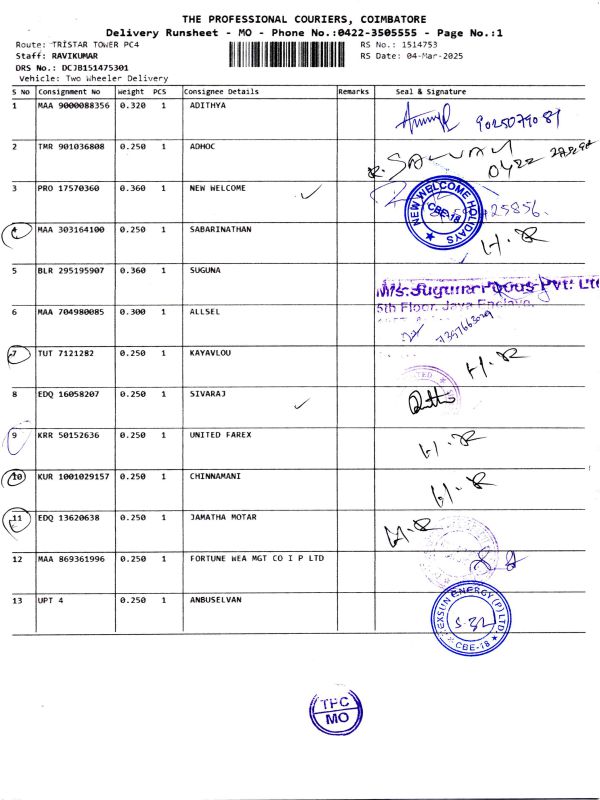 THE PROFESSIONAL COURIERS, COIMBATORE
Delivery Runsheet - MO - Phone No.:0422-3505555 - Page No.:1
Route: TRISTAR TOWER PC4 RS No.: 1514753
Staff: RAVIKUMAR RS Date: 04-Mar-2025
DRS No.: DCJB151475301
Vehicle: Two Wheeler Delivery
S No Consignment No Weight PCS Consignee Details Remarks Seal & Signature
1 MAA 9000088356 0.320 1 ADITHYA 9025079081
2 TMR 901036808 0.250 1 ADHOC 0422
3 PRO 17570360 0.360 1 NEW WELCOME NEW WELCOME HOLIDAYS CBE-18 25856.
4 MAA 303164100 0.250 1 SABARINATHAN H.R
5 BLR 295195907 0.360 1 SUGUNA M/s.Suguna Foods Pvt. Ltd
5th Floor, Jaya Enclave,
6 MAA 704980085 0.300 1 ALLSEL
7 TUT 7121282 0.250 1 KAYAVLOU H.R
8 EDQ 16058207 0.250 1 SIVARAJ
9 KRR 50152636 0.250 1 UNITED FAREX H.R
10 KUR 1001029157 0.250 1 CHINNAMANI H.R
11 EDQ 13620638 0.250 1 JAMATHA MOTAR H.R
12 MAA 869361996 0.250 1 FORTUNE WEA MGT CO I P LTD
13 UPT 4 0.250 1 ANBUSELVAN EXSUN ENERGY (P) LTD. CBE-18
TPC
MO